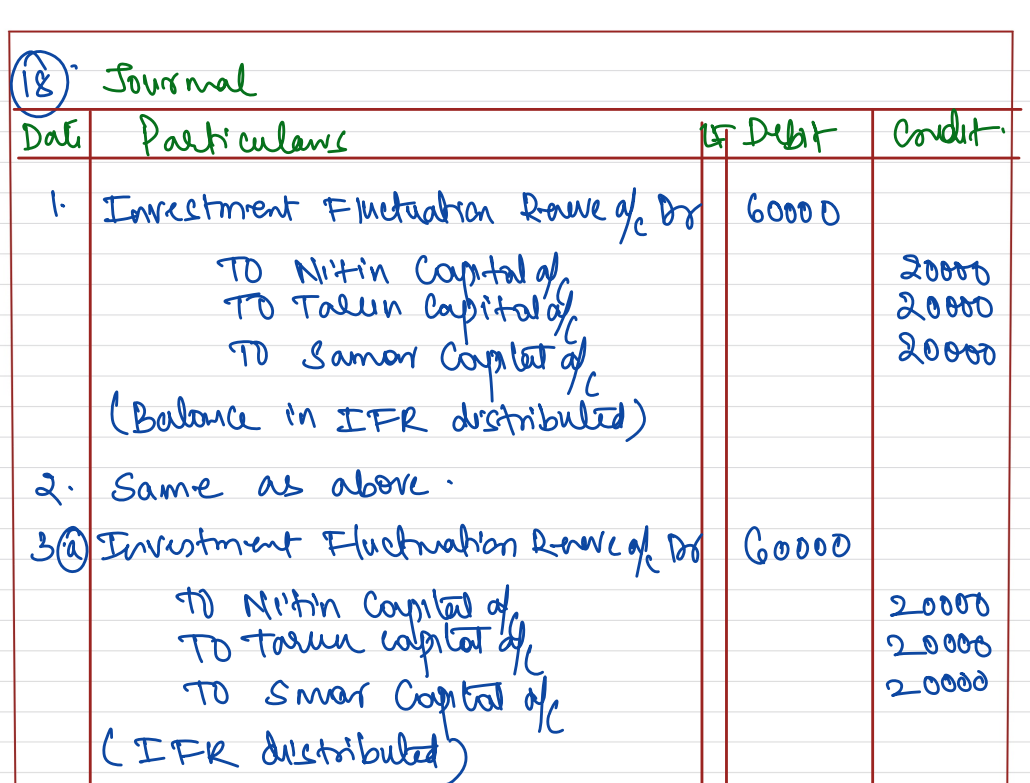 18. Journal
Date Particulars LF Debit Credit.
1. Investment Fluctuation Reserve a/c Dr 60000
To Nitin Capital a/c 20000
To Tarun Capital a/c 20000
To Samar Capital a/c 20000
(Balance in IFR distributed)
2. Same as above.
3 a Investment Fluctuation Reserve a/c Dr 60000
To Nitin Capital a/c 20000
To Tarun Capital a/c 20000
To Smar Capital a/c 20000
(IFR distributed)